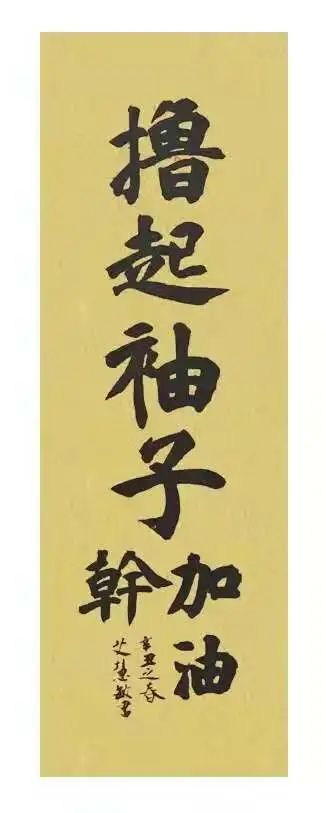 撸起袖子加油
幹
辛丑之春
艾慧敏书